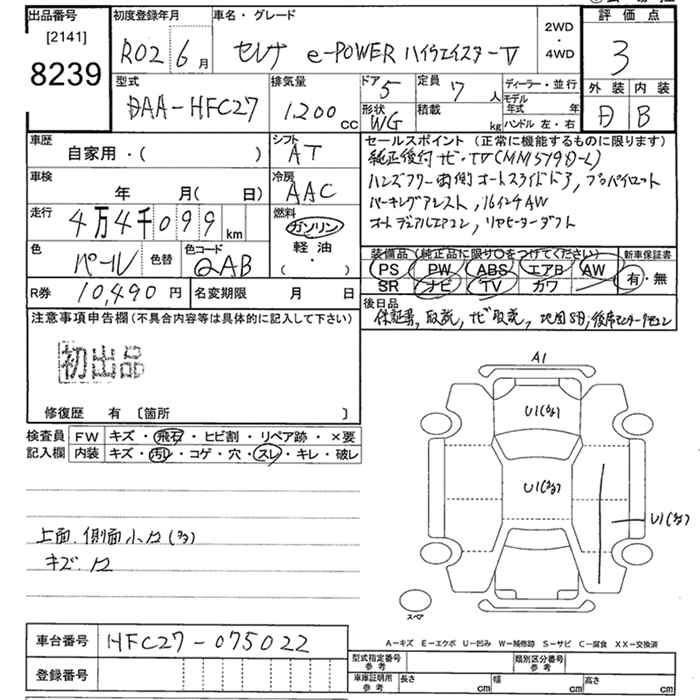 出品番号 初度登録年月 車名・グレード 2WD・4WD 評価点
[2141]
8239
R02 6月 セレナ e-POWER ハイウェイスターV 3
型式 排気量 ドア 5 定員 7人 ディーラー・並行 外装 内装
DAA-HFC27 1,200cc 形状 WG 積載 kg モデル年式 年 ハンドル 左・右 D B
車歴 シフト セールスポイント (正常に機能するものに限ります)
自家用・( ) AT 純正後付ナビ・TV(MM519D-L)
車検 冷房 ハンズフリー両側オートスライドドア, プロパイロット
年 月( 日) AAC パーキングアシスト, 16インチAW
走行 燃料 オートデュアルエアコン, リヤヒーターダクト
4万4千099km ガソリン
軽油
( ・ )
色 パール 色替 色コード QAB
装備品 (純正品に限り○をつけてください) 新車保証書
PS PW ABS エアB AW 有・無
SR ナビ TV カワ
R券 10,490円 名変期限 月 日
後日品
保証書, 取説, ナビ取説,
注意事項申告欄 (不具合内容等は具体的に記入して下さい)
初出品
修復歴 有 〔箇所 〕
検査員 FW キズ・飛石・ヒビ割・リペア跡・×要
記入欄 内装 キズ・汚レ・コゲ・穴・スレ・キレ・破レ
A1
U1(多)
U1(多)
U1(多)
上面, 側面小凹(多)
キズ, 凹
スペア
車台番号 HFC27-075022
登録番号
A-キズ E-エクボ U-凹み W-補修跡 S-サビ C-腐食 XX-交換済
型式指定番号 参考 類別区分番号 参考
車庫証明用 参考 長さ cm 幅 cm 高さ cm